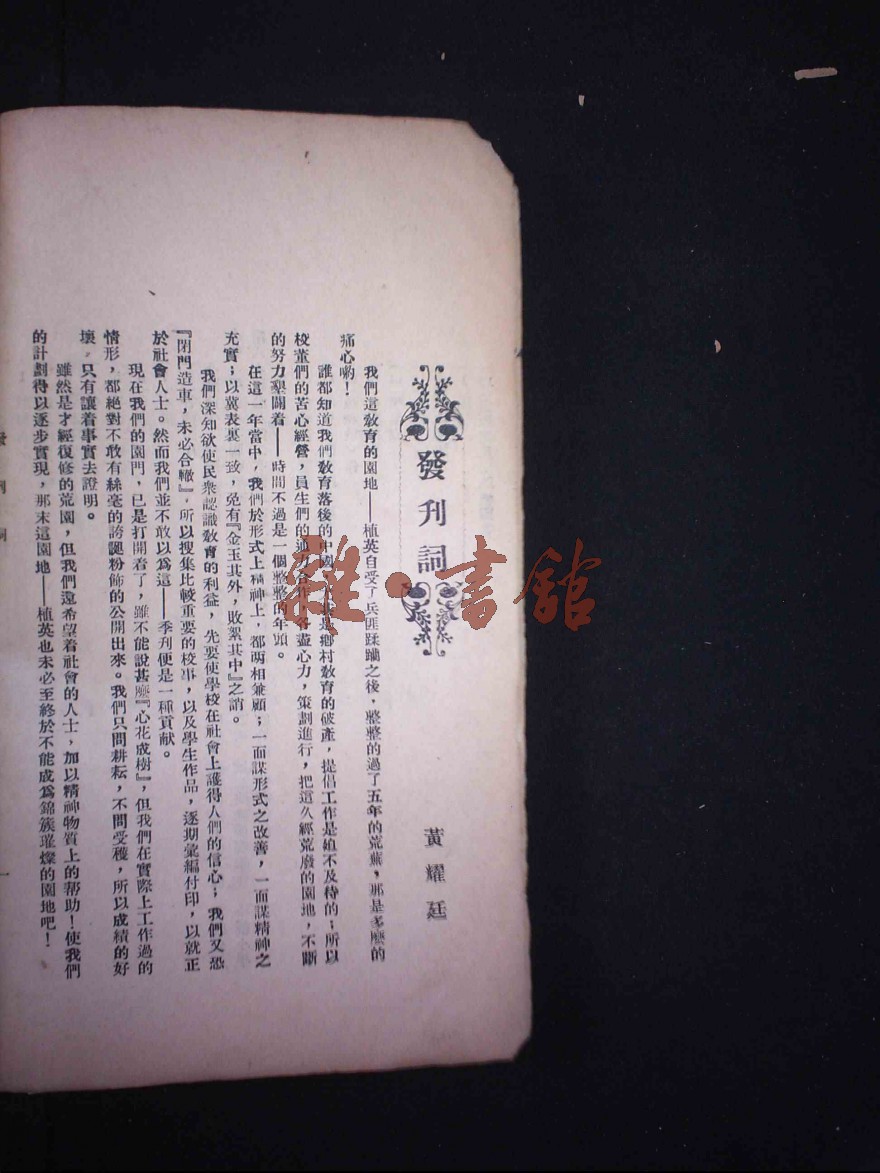 發刊詞
黃耀廷
我們這教育的園地——植英自受了兵匪蹂躪之後，整整的過了五年的荒蕪，那是多麼的
痛心喲！
誰都知道我們教育落後的中國鄉村教育的破產，提倡工作是絕不及待的；所以
校董們的苦心經營，員生們的通力合作，各盡心力，策劃進行，把這久經荒廢的園地，不斷
的努力墾闢着——時間不過是一個整整的年頭。
在這一年當中，我們於形式上精神上，都兩相兼顧；一面謀形式之改善，一面謀精神之
充實；以冀表裏一致，免有『金玉其外，敗絮其中』之誚。
我們深知欲使民衆認識教育的利益，先要使學校在社會上護得人們的信心；我們又恐
『閉門造車，未必合轍』，所以搜集比較重要的校事，以及學生作品，逐期彙編付印，以就正
於社會人士。然而我們並不敢以爲這——季刋便是一種貢献。
現在我們的園門，已是打開着了，雖不能說甚麼『心花成樹』，但我們在實際上工作過的
情形，都絕對不敢有絲毫的誇誕粉飾的公開出來。我們只問耕耘，不問受穫，所以成績的好
壞，只有讓着事實去證明。
雖然是才經復修的荒園，但我們還希望着社會的人士，加以精神物質上的帮助！使我們
的計劃得以逐步實現，那末這園地——植英也未必至終於不能成爲錦簇璀燦的園地吧！
發刊詞
一
雜·書館